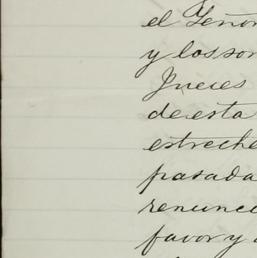 el Señor
y los
Jueces
de esta
estreche
pasada
renunce
favor y